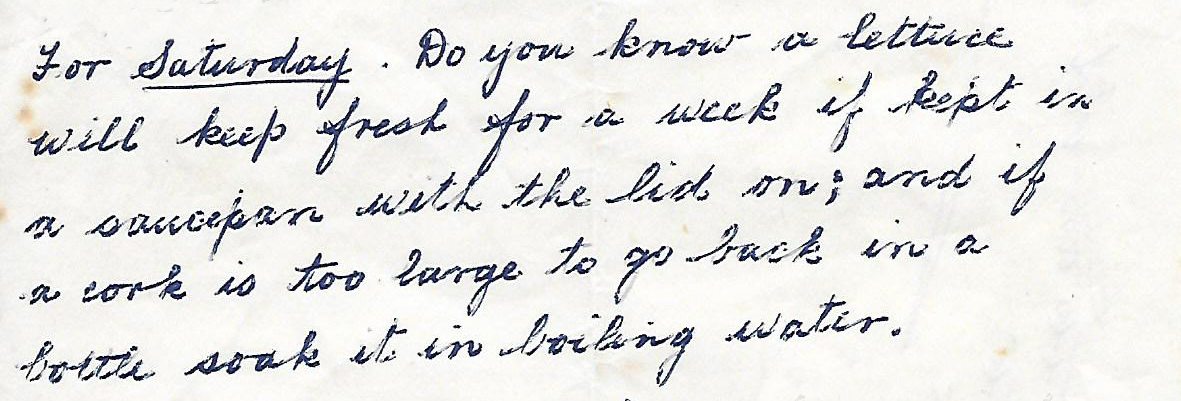 For Saturday. Do you know a lettuce
will keep fresh for a week if kept in
a saucepan with the lid on; and if
a cork is too large to go back in a
bottle soak it in boiling water.